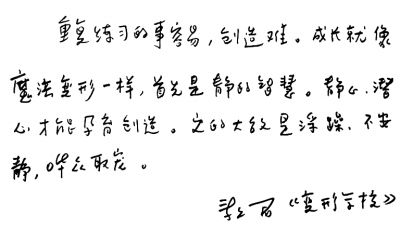 重复练习的事容易,创造难。成长就像
魔法变形一样,首先是静的智慧。静心、潜
心才能孕育创造。它的大敌是浮躁、不安
静,哗众取宠。
《变形学校》